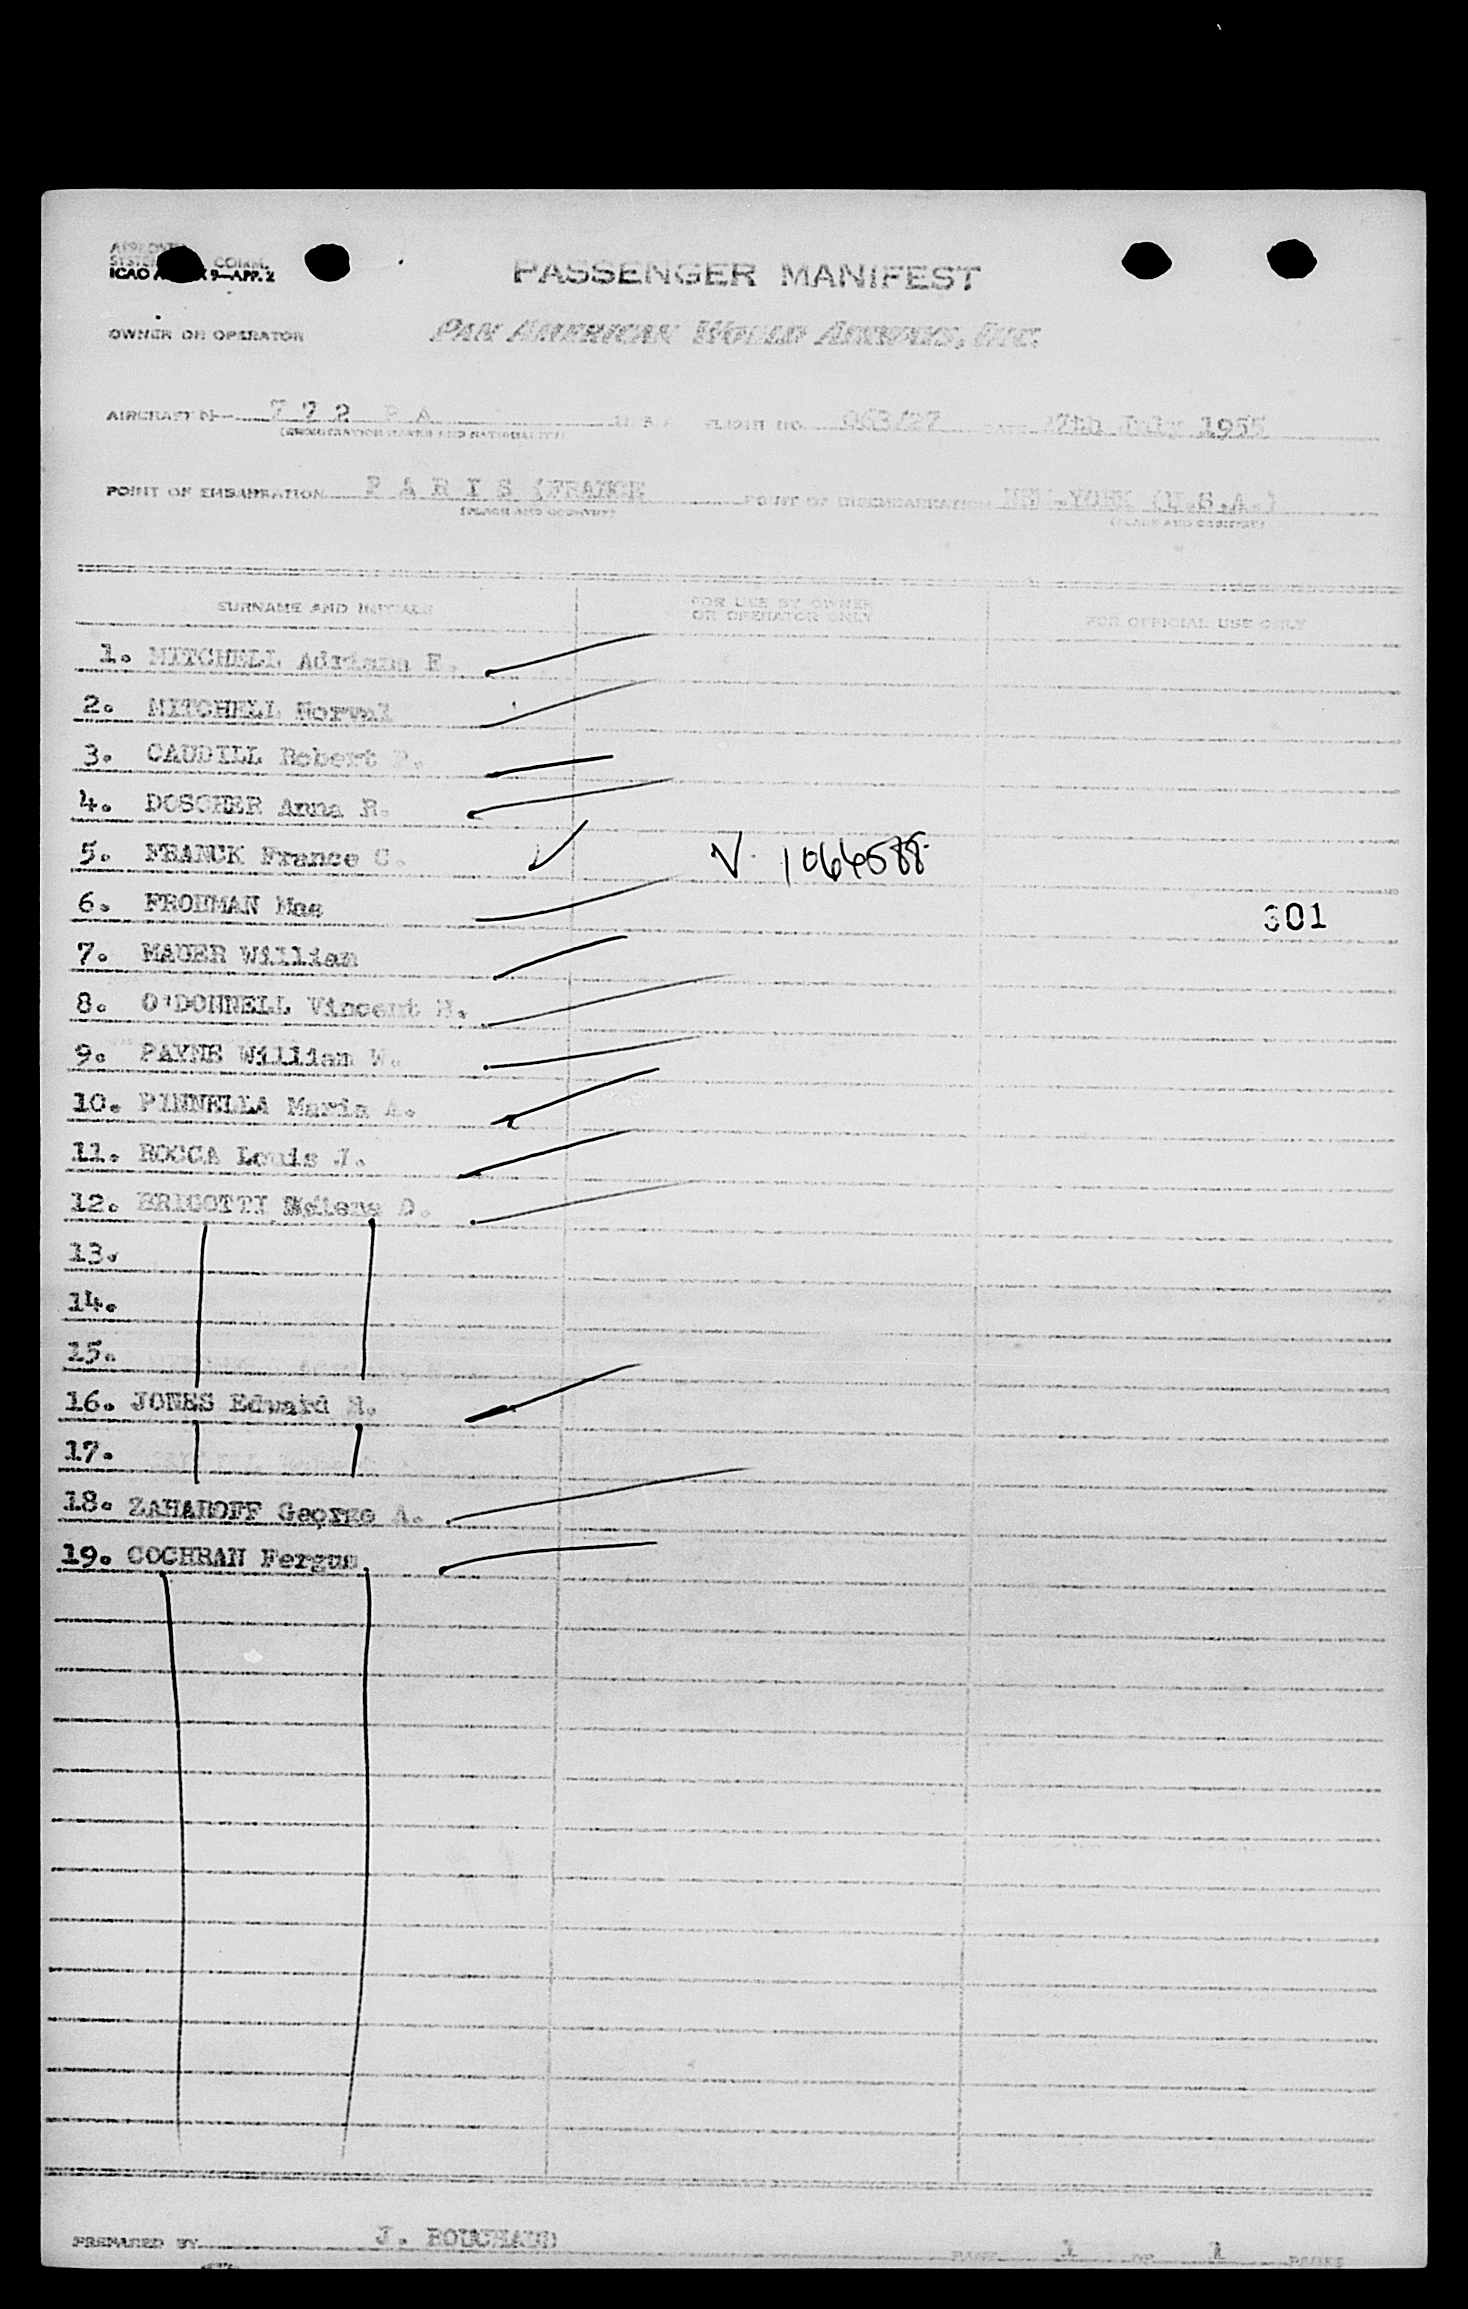 APPROVED
SYSTEM COMM.
ICAO A X 9—APP. 2
PASSENGER MANIFEST
OWNER OR OPERATOR PAN AMERICAN WORLD AIRWAYS, INC.
AIRCRAFT 7 7 2 P A FLIGHT NO. 063/27 July 1955
(REGISTRATION MARKS AND NATIONALITY)
POINT OF EMBARKATION P A R I S (FRANCE POINT OF DISEMBARKATION NEW-YORK (U.S.A.)
(PLACE AND COUNTRY) (PLACE AND COUNTRY)
SURNAME AND INITIALS FOR USE BY OWNER OR OPERATOR ONLY FOR OFFICIAL USE ONLY
1. MITCHELL Adriana E.
2. MITCHELL Norval
3. CAUDILL Robert P.
4. DOSCHER Anna R.
5. FRANCK France C. V. 1064588
6. FRODMAN Mae
301
7. MAUER William
8. O'DONNELL Vincent
9. PAYNE William W.
10. PINNELLA Maria A.
11. ROCCA Louis J.
12. BRIGOTTI D.
13.
14.
15.
16. JONES Edward
17.
18. ZAHAROFF George A.
19. COCHRAN Fergus
PREPARED BY J. PAGE 1 OF 1 PAGES